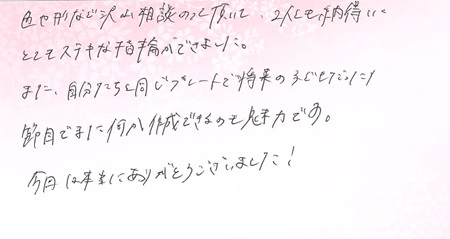 色や形など沢山相談のって頂いて、2人とも納得いく
とてもステキな指輪ができました。
また、自分たちと同じプレートで将来の子どもたちに
節目でまた何か作成できるのも魅力です。
今日は本当にありがとうございました！